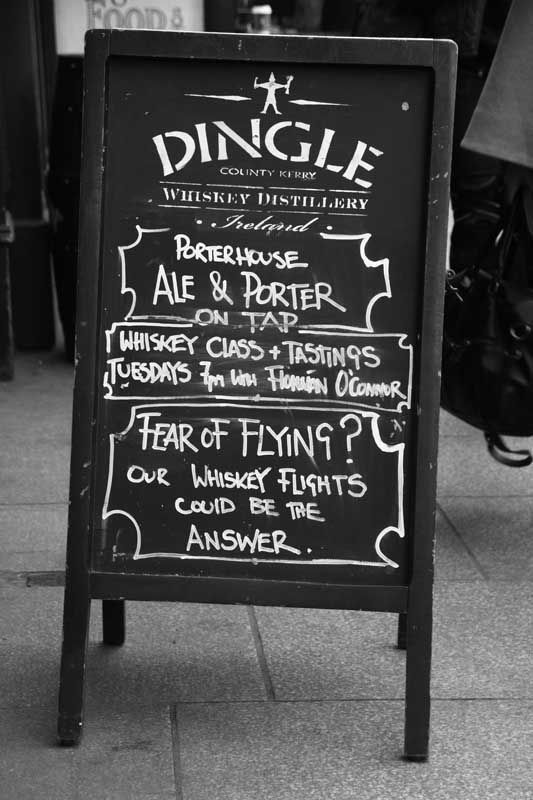 FOOD &
DINGLE
COUNTY KERRY
WHISKEY DISTILLERY
• Ireland •
PORTERHOUSE
ALE & PORTER
ON TAP
WHISKEY CLASS + TASTINGS
TUESDAYS 7pm WITH FIONNÁN O'CONNOR
FEAR OF FLYING?
OUR WHISKEY FLIGHTS
COULD BE THE
ANSWER.